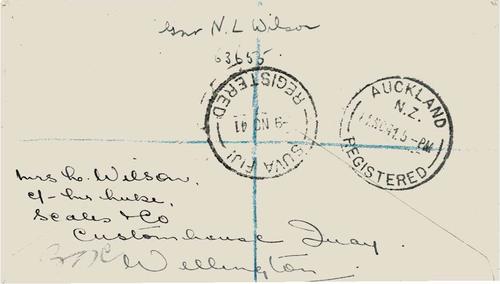 Gnr N. L Wilson
63655
REGISTERED
9 NO 41
SUVA FIJI
AUCKLAND
N.Z.
11 NO 41. 5 - PM
REGISTERED
Mrs L. Wilson,
c/-
Scales & Co
Customhouse Quay.
Wellington